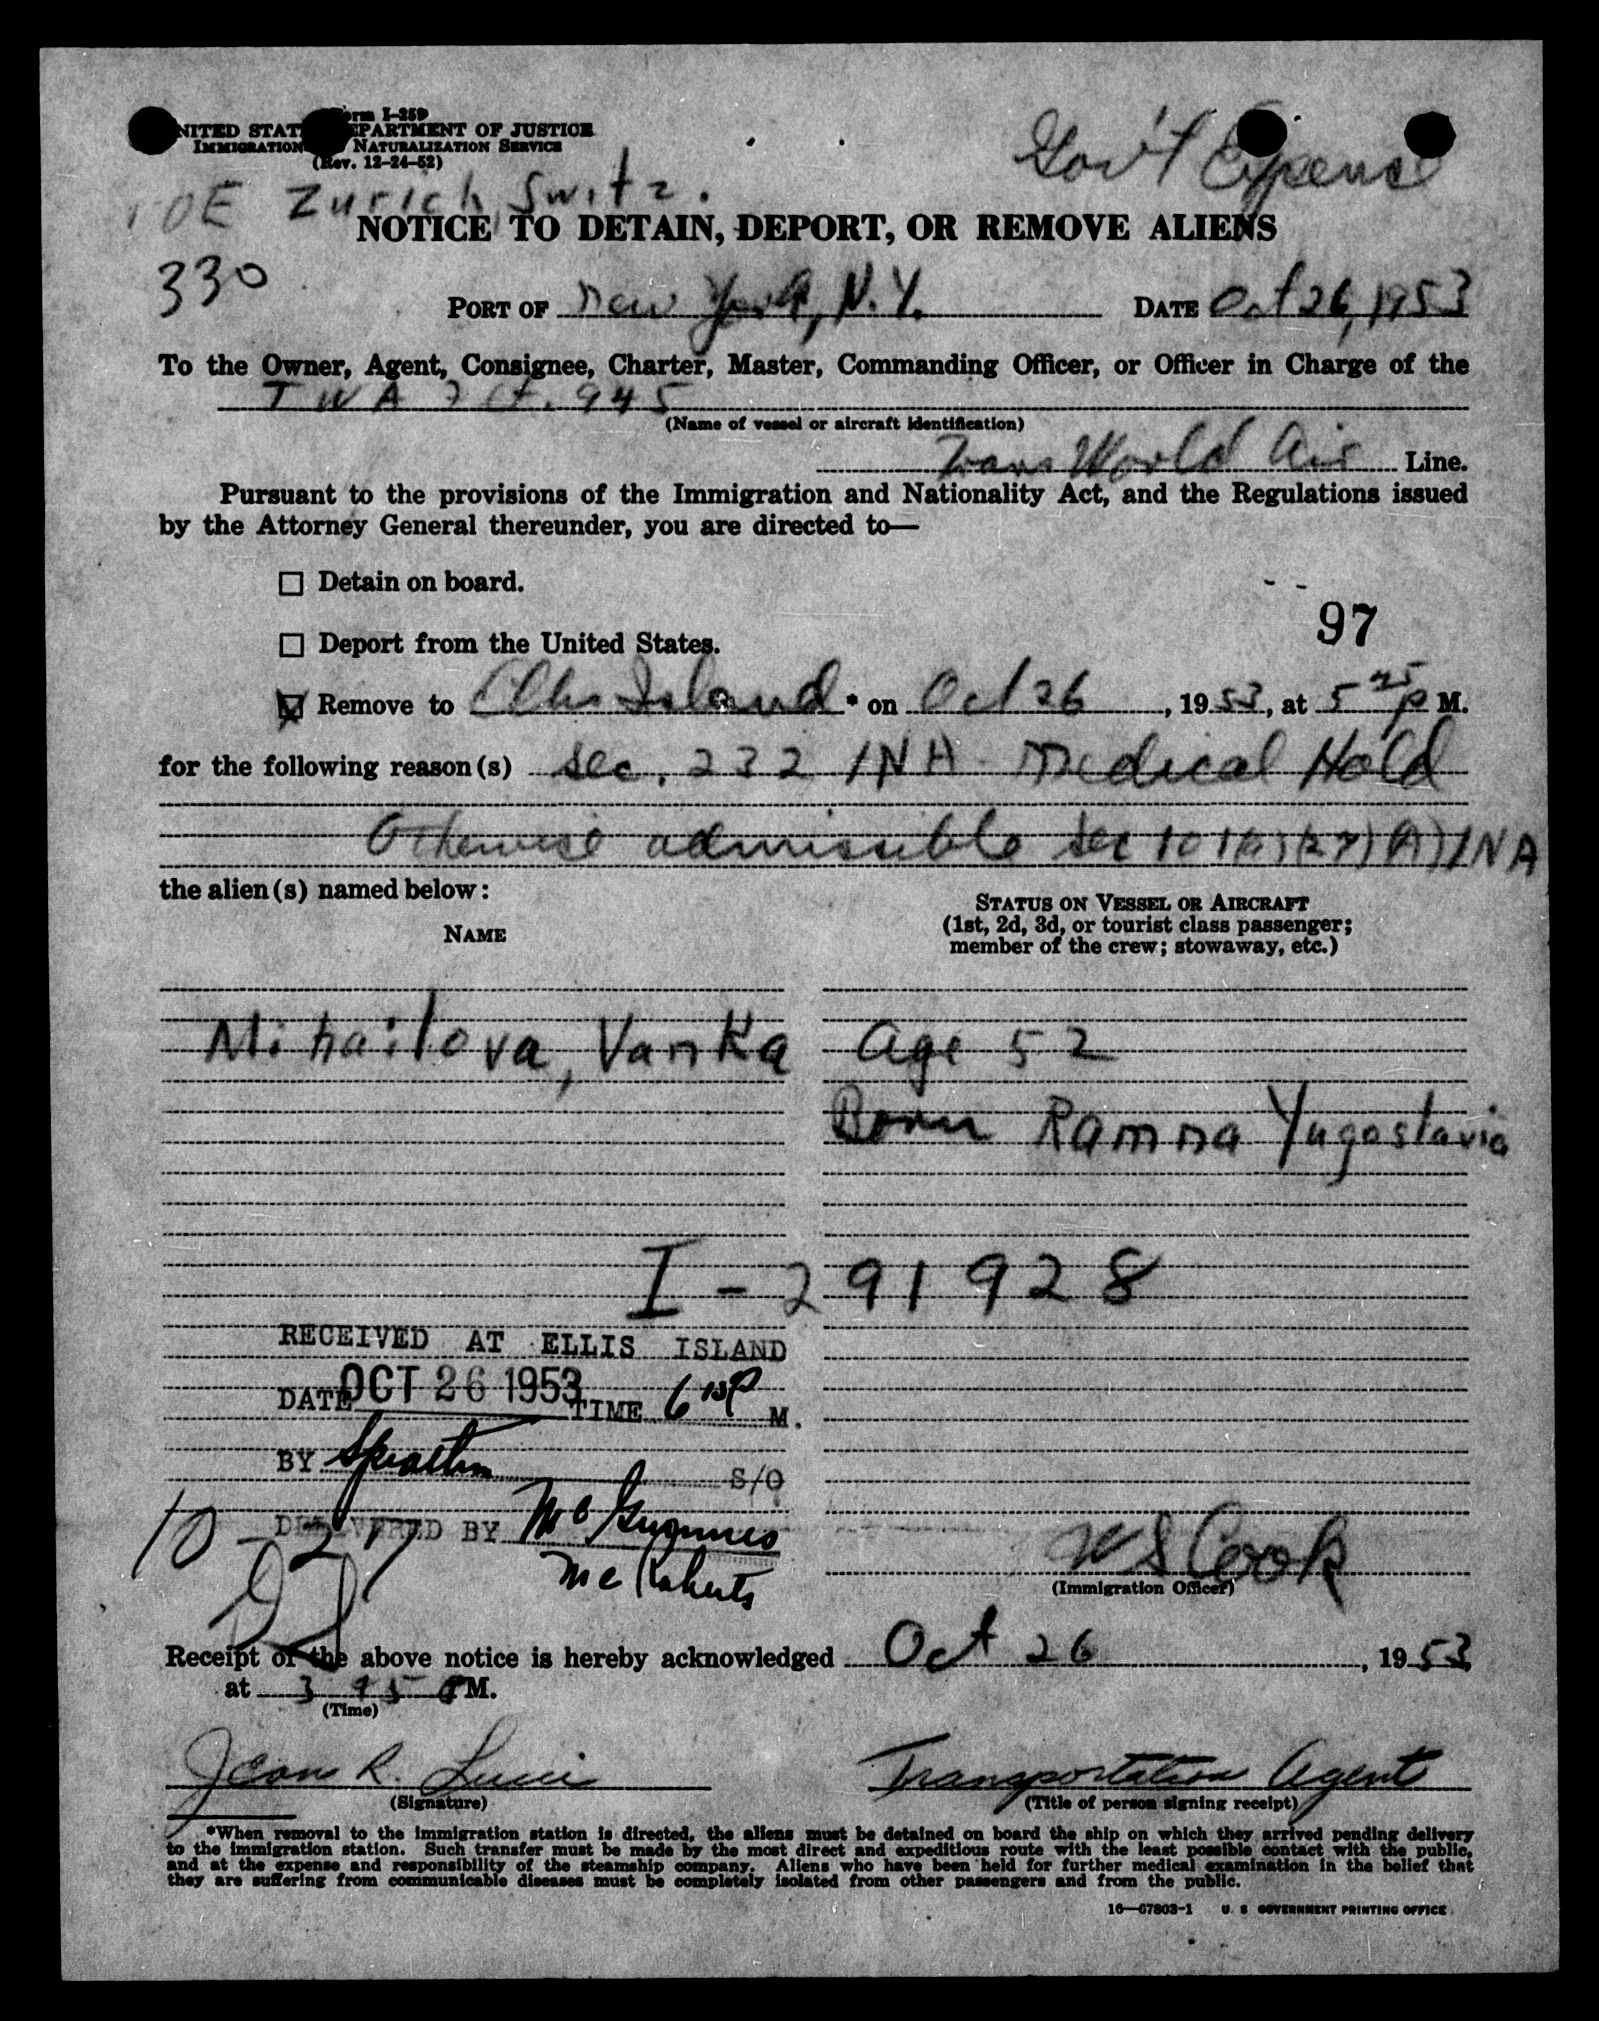 Form I-259
UNITED STATES DEPARTMENT OF JUSTICE
IMMIGRATION NATURALIZATION SERVICE
(Rev. 12-24-52)
Gov't Expense
POE Zurich, Switz.
NOTICE TO DETAIN, DEPORT, OR REMOVE ALIENS
330
PORT OF New York, N.Y. DATE Oct 26, 1953
To the Owner, Agent, Consignee, Charter, Master, Commanding Officer, or Officer in Charge of the
TWA Flt. 945
(Name of vessel or aircraft identification)
Trans World Air Line.
Pursuant to the provisions of the Immigration and Nationality Act, and the Regulations issued
by the Attorney General thereunder, you are directed to—
Detain on board.
97
Deport from the United States.
Remove to Ellis Island * on Oct 26, 1953, at 5 45 P M.
for the following reason(s) Sec. 232 INA - Medical Hold
Otherwise admissible Sec 101(a)(27)(A) INA
the alien(s) named below:
STATUS ON VESSEL OR AIRCRAFT
NAME
(1st, 2d, 3d, or tourist class passenger;
member of the crew; stowaway, etc.)
Mihailova, Vanka Age 52
Born Ramna Yugoslavia
I-291928
RECEIVED AT ELLIS ISLAND
DATE OCT 26 1953 TIME 6 15 P M.
BY S/O
DELIVERED BY McGuinness
McRoberts
10-27
W S Cook
(Immigration Officer)
Receipt of the above notice is hereby acknowledged Oct 26, 1953,
at 3 45 PM.
(Time)
Jean R. Transportation Agent
(Signature) (Title of person signing receipt)
*When removal to the immigration station is directed, the aliens must be detained on board the ship on which they arrived pending delivery
to the immigration station. Such transfer must be made by the most direct and expeditious route with the least possible contact with the public,
and at the expense and responsibility of the steamship company. Aliens who have been held for further medical examination in the belief that
they are suffering from communicable diseases must be completely isolated from other passengers and from the public.
16—67803-1 U. S. GOVERNMENT PRINTING OFFICE